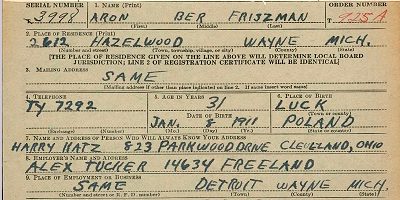 SERIAL NUMBER 1. NAME (Print) ORDER NUMBER
3998 ARON BER FRIJZMAN 925A
(First) (Middle) (Last)
2. PLACE OF RESIDENCE (Print)
2612 HAZELWOOD WAYNE MICH.
(Number and street) (Town, township, village, or city) (County) (State)
[THE PLACE OF RESIDENCE GIVEN ON THE LINE ABOVE WILL DETERMINE LOCAL BOARD
JURISDICTION; LINE 2 OF REGISTRATION CERTIFICATE WILL BE IDENTICAL]
3. MAILING ADDRESS
SAME
[Mailing address if other than place indicated on line 2. If same insert word same]
4. TELEPHONE 5. AGE IN YEARS 6. PLACE OF BIRTH
TY 7292 31 LUCK
DATE OF BIRTH (Town or county)
JAN. 1911 POLAND
(Exchange) (Number) (Mo.) (Day) (Yr.) (State or country)
7. NAME AND ADDRESS OF PERSON WHO WILL ALWAYS KNOW YOUR ADDRESS
HARRY HATZ 823 PARKWOOD DRIVE CLEVELAND, OHIO
8. EMPLOYER'S NAME AND ADDRESS
ALEX TUCKER 14634 FREELAND
9. PLACE OF EMPLOYMENT OR BUSINESS
SAME DETROIT WAYNE MICH.
(Number and street or R. F. D. number) (Town) (County) (State)